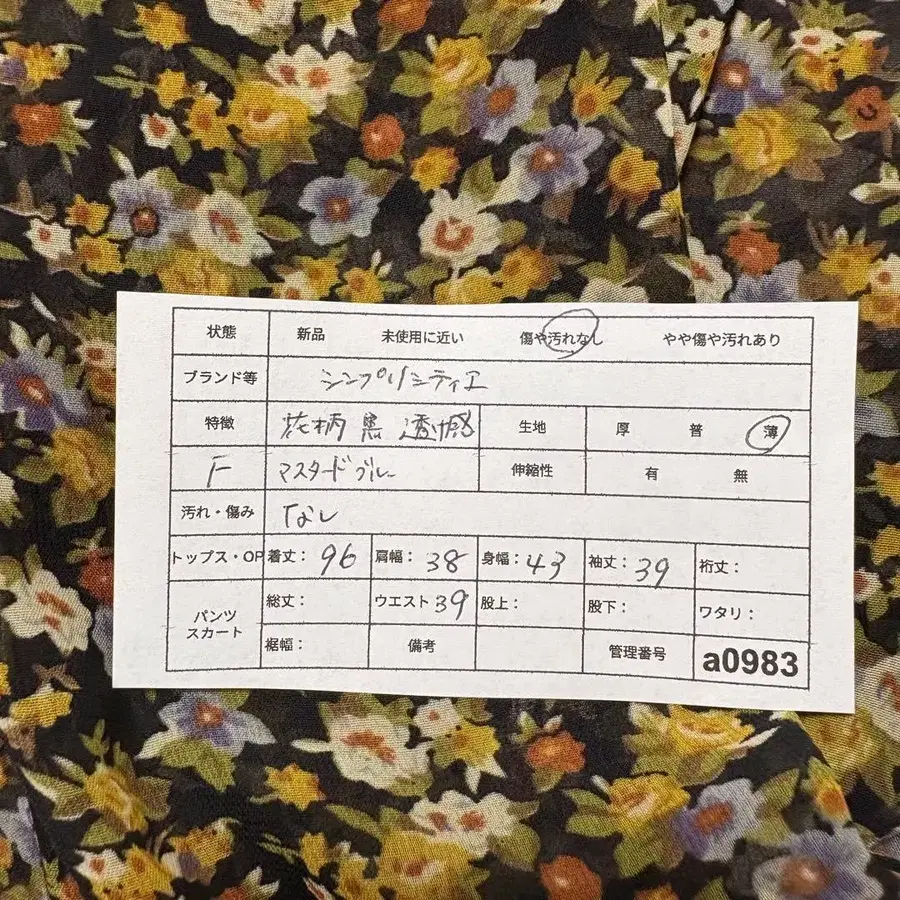 状態 新品 未使用に近い 傷や汚れなし やや傷や汚れあり
ブランド等 シンプリシティエ
特徴 花柄 黒 透け感 生地 厚 普 薄
F マスタードブルー 伸縮性 有 無
汚れ・傷み なし
トップス・OP 着丈: 96 肩幅: 38 身幅: 43 袖丈: 39 裄丈:
パンツ スカート 総丈: ウエスト 39 股上: 股下: ワタリ:
裾幅: 備考 管理番号 a0983